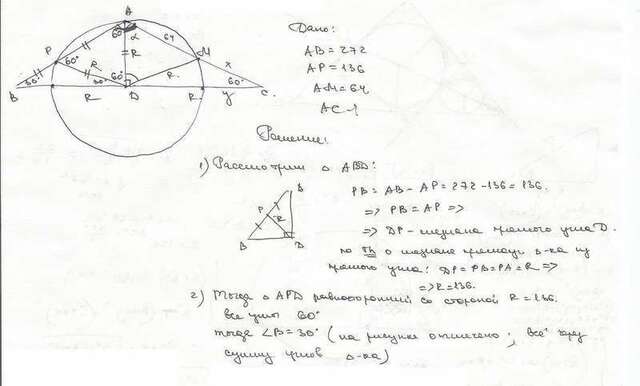 A
60° α
64
P
M
R
x
60°
60°
R
R
30°
30°
60°
B
R
D
R
y
C
Дано:
AB = 272
AP = 136
AM = 64
AC - ?
Решение:
1) Рассмотрим △ ABD:
PB = AB - AP = 272 - 136 = 136.
=> PB = AP =>
=> DP - медиана прямого угла D.
по Th о медиане прямоуг △-ка из
прямого угла: DP = PB = PA = R =>
=> R = 136.
P
R
B
D
2) Тогда △ APD равносторонний со стороной R = 136.
все углы 60°
тогда ∠B = 30° (на рисунке отмечено; всё чрез
сумму углов △-ка)